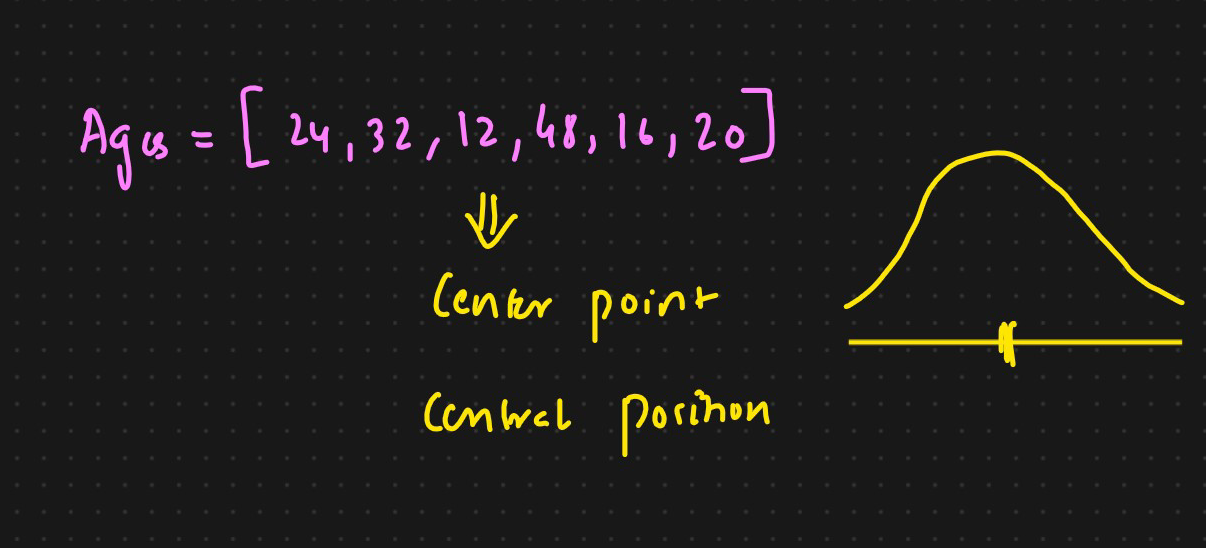 Ages = [ 24, 32, 12, 48, 16, 20]
Center point
Central position